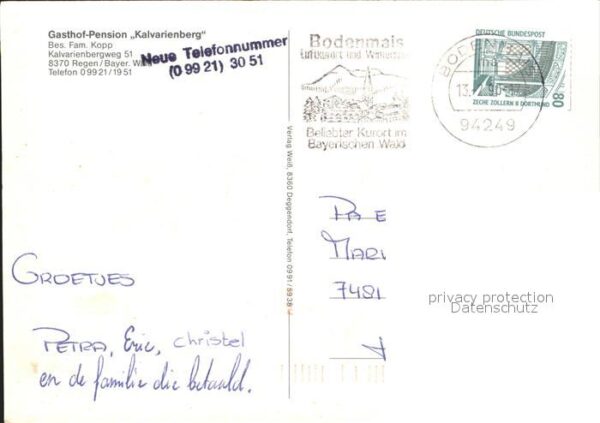 Gasthof-Pension „Kalvarienberg"
Bes. Fam. Kopp
Kalvarienbergweg 51
8370 Regen/Bayer.
Telefon 0 99 21 / 19 51
Neue Telefonnummer
(0 99 21) 30 51
Bodenmais
Luftkurort und
Beliebter Kurort im
Bayerischen Wald
94249
DEUTSCHE BUNDESPOST
ZECHE ZOLLERN II DORTMUND
80
Verlag Weiß, 8360 Deggendorf, Telefon 0991/5938
MARI
7481
privacy protection
Datenschutz
GROETJES
PETRA, Eric, christel
en de familie die betaald.